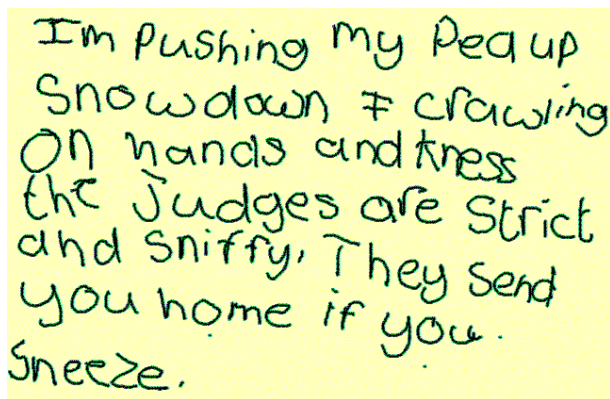 Im pushing my Pea up
Snowdown I crawling
On hands and kness
the Judges are Strict
and sniffy, They send
you home if you.
Sneeze.